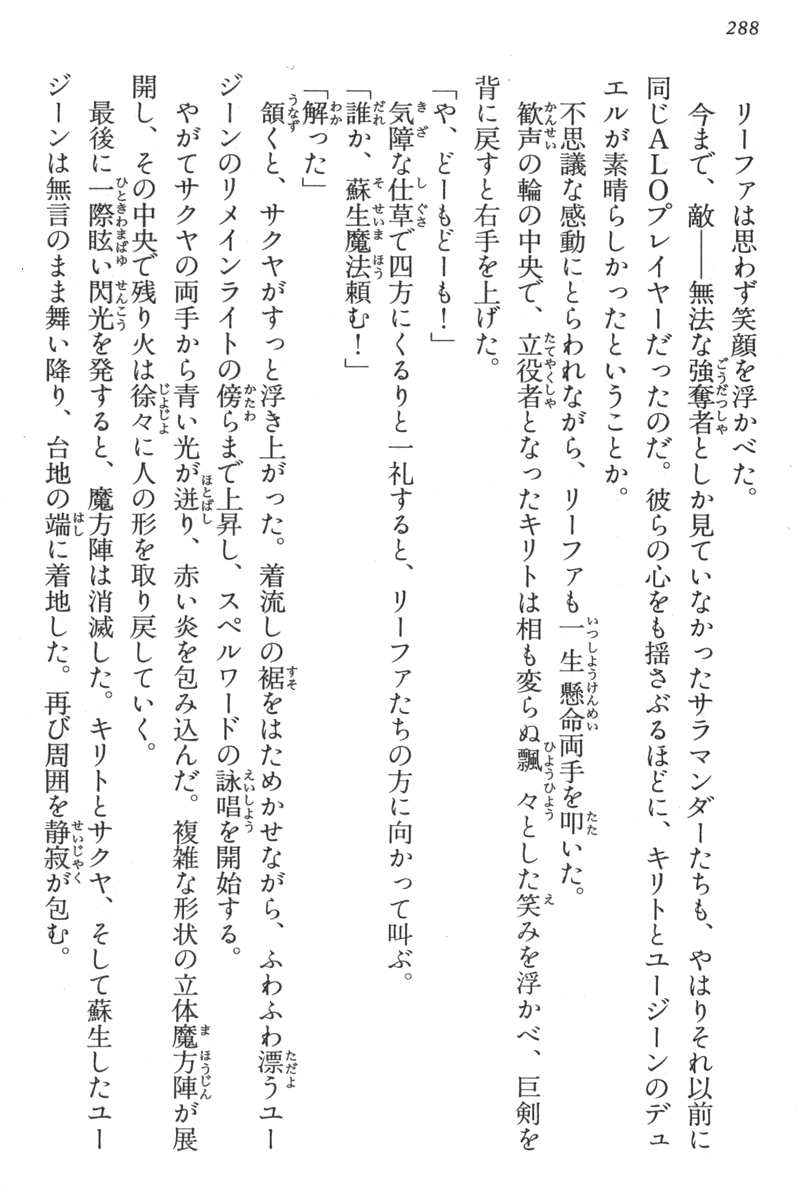 288
リーファは思わず笑顔を浮かべた。
今まで、敵――無法な強奪者としか見ていなかったサラマンダーたちも、やはりそれ以前に
同じＡＬＯプレイヤーだったのだ。彼らの心をも揺さぶるほどに、キリトとユージーンのデュ
エルが素晴らしかったということか。
不思議な感動にとらわれながら、リーファも一生懸命両手を叩いた。
歓声の輪の中央で、立役者となったキリトは相も変らぬ飄々とした笑みを浮かべ、巨剣を
背に戻すと右手を上げた。
「や、どーもどーも！」
気障な仕草で四方にくるりと一礼すると、リーファたちの方に向かって叫ぶ。
「誰か、蘇生魔法頼む！」
「解った」
頷くと、サクヤがすっと浮き上がった。着流しの裾をはためかせながら、ふわふわ漂うユー
ジーンのリメインライトの傍らまで上昇し、スペルワードの詠唱を開始する。
やがてサクヤの両手から青い光が迸り、赤い炎を包み込んだ。複雑な形状の立体魔方陣が展
開し、その中央で残り火は徐々に人の形を取り戻していく。
最後に一際眩い閃光を発すると、魔方陣は消滅した。キリトとサクヤ、そして蘇生したユー
ジーンは無言のまま舞い降り、台地の端に着地した。再び周囲を静寂が包む。